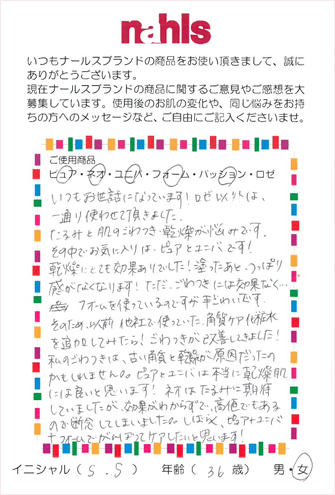 nahls
いつもナールスブランドの商品をお使い頂きまして、誠に
ありがとうございます。
現在ナールスブランドの商品に関するご意見やご感想を大
募集しています。使用後のお肌の変化や、同じ悩みをお持
ちの方へのメッセージなど、ご自由にご記入くださいませ。
ご使用商品
ピュア・ネオ・ユニバ・フォーム・パッション・ロゼ
いつもお世話になっています!ロゼ以外は、
一通り使わせて頂きました。
たるみと肌のごわつき・乾燥が悩みです。
その中でお気に入りは、ピュアとユニバです!
乾燥にとても効果ありでした!塗ったあと、つっぱり
感がなくなります!ただ、ごわつきには効果なく…
フォームを使っているのですが手ごわいです。
そのため、以前他社で使っていた、角質ケア化粧水
を追加してみたら!ごわつきが改善してきました!
私のごわつきは、古い角質と乾燥が原因だったの
かもしれません。ピュアとユニバは本当に乾燥肌
には良いと思います!ネオはたるみに期待
していましたが、効果がわからずで、高価でもある
ので断念してしまいました。しばらく、ピュアとユニバ
+フォームでがんばってケアしたいと思います!
イニシャル ( S.S ) 年齢 ( 36 歳) 男・女